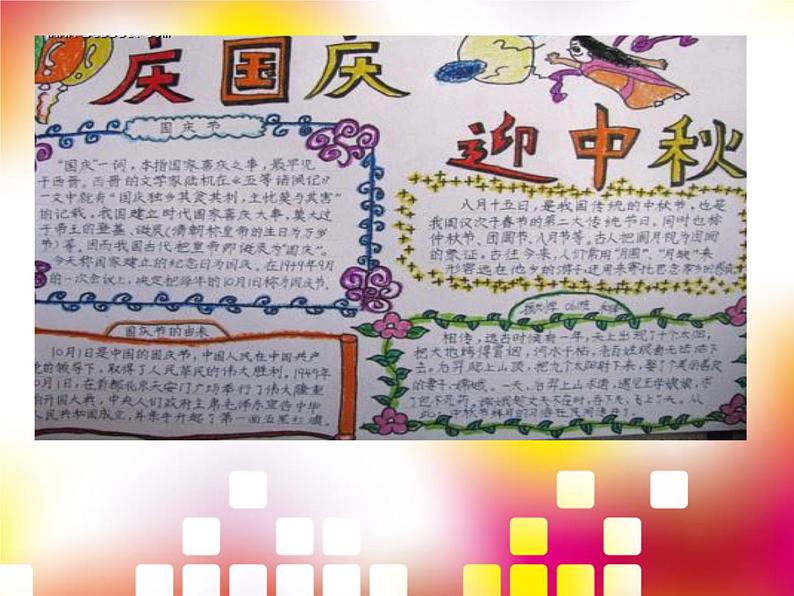 庆国庆
迎中秋
国庆节
“国庆”一词，本指国家喜庆之事，最早见
于西晋。西晋的文学家陆机在《五等诸侯记》
一文中就有“国庆独乡其贪其利，主忧莫与其害”
的记载，我国建立时代国家喜庆大事，莫大过
于帝王的登基、诞辰(清朝称皇帝的生日为万岁
节)等。因而我国古代把皇帝即
诞辰为“国庆”。
今天称国家建立的纪念日为国庆。在1949年9月
的一次会议上，决定把每年的10月1日称为国庆节
国庆节的由来
10月1日是中国的国庆节，中国人民在中国共产
党的领导下，取得了人民革民的伟大胜利。1949年
0月1日，在首都北京天安门广场举行了伟大隆重
的开国大典，中央人们政府主席毛泽东宣告中华
人民共和国成立，并亲手升起了第一面五星红旗。
八月十五日，是我国传统的中秋节，也是
我国仅次于春节的第二大传统节日。同时也称
仲秋节、团圆节、八月节等。古人把圆月视为团圆
的象征，古往今来，人们常用“月圆”、“月缺”来
形容
远在他乡的游子，还用来寄托思念家乡
相传，远古时候有一年，天上出现了十个太阳，
把大地烤得冒烟，河水干枯，老百姓
活下
去。后羿爬上高山，把九个太阳射下来，
的妻子，嫦娥。一天，后羿上山求道，遇见王母娘娘，求
了包不死药。嫦娥
丈夫不在时，吞下
，飞上了天。从
此，中秋节拜月的习俗在